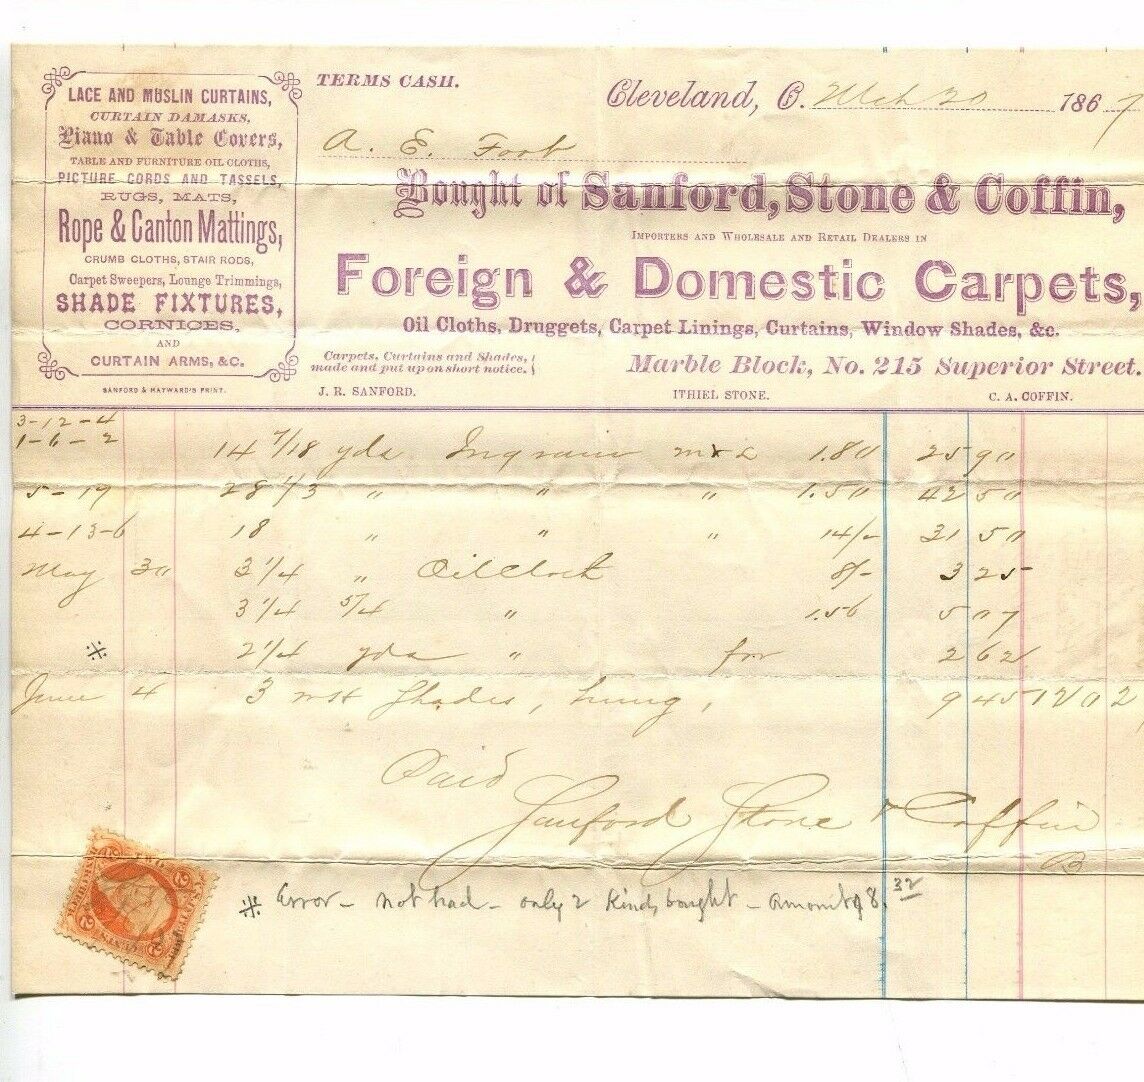 LACE AND MUSLIN CURTAINS,
CURTAIN DAMASKS,
Piano & Table Covers,
TABLE AND FURNITURE OIL CLOTHS,
PICTURE CORDS AND TASSELS,
RUGS, MATS,
Rope & Canton Mattings,
CRUMB CLOTHS, STAIR RODS,
Carpet Sweepers, Lounge Trimmings,
SHADE FIXTURES,
CORNICES,
AND
CURTAIN ARMS, &C.
SANFORD & HAYWARD'S PRINT.
TERMS CASH.
Cleveland, O. Mch 20 1867
A. E. Foot
Bought of Sanford, Stone & Coffin,
IMPORTERS AND WHOLESALE AND RETAIL DEALERS IN
Foreign & Domestic Carpets,
Oil Cloths, Druggets, Carpet Linings, Curtains, Window Shades, &c.
Carpets, Curtains and Shades,
made and put up on short notice.
Marble Block, No. 215 Superior Street.
J. R. SANFORD. ITHIEL STONE. C. A. COFFIN.
3-12-4
1-6-2 14 7/18 yds Ingrain 1.80 25 90
5-19 28 1/3 " " " 1.50 42 50
4-13-6 18 " " " 14/- 31 50
May 30 3 1/4 " Oil Cloth 8/- 3 25
3 1/4 5/4 " 1.56 5 07
※ 2 1/4 yds " for 2 62
June 4 3 Shades, hung, 9 45 120 2
Paid
Sanford Stone & Coffin
B
※ Error - not had - only 2 Kinds bought - amount of 8.32
2 2
CENTS
2